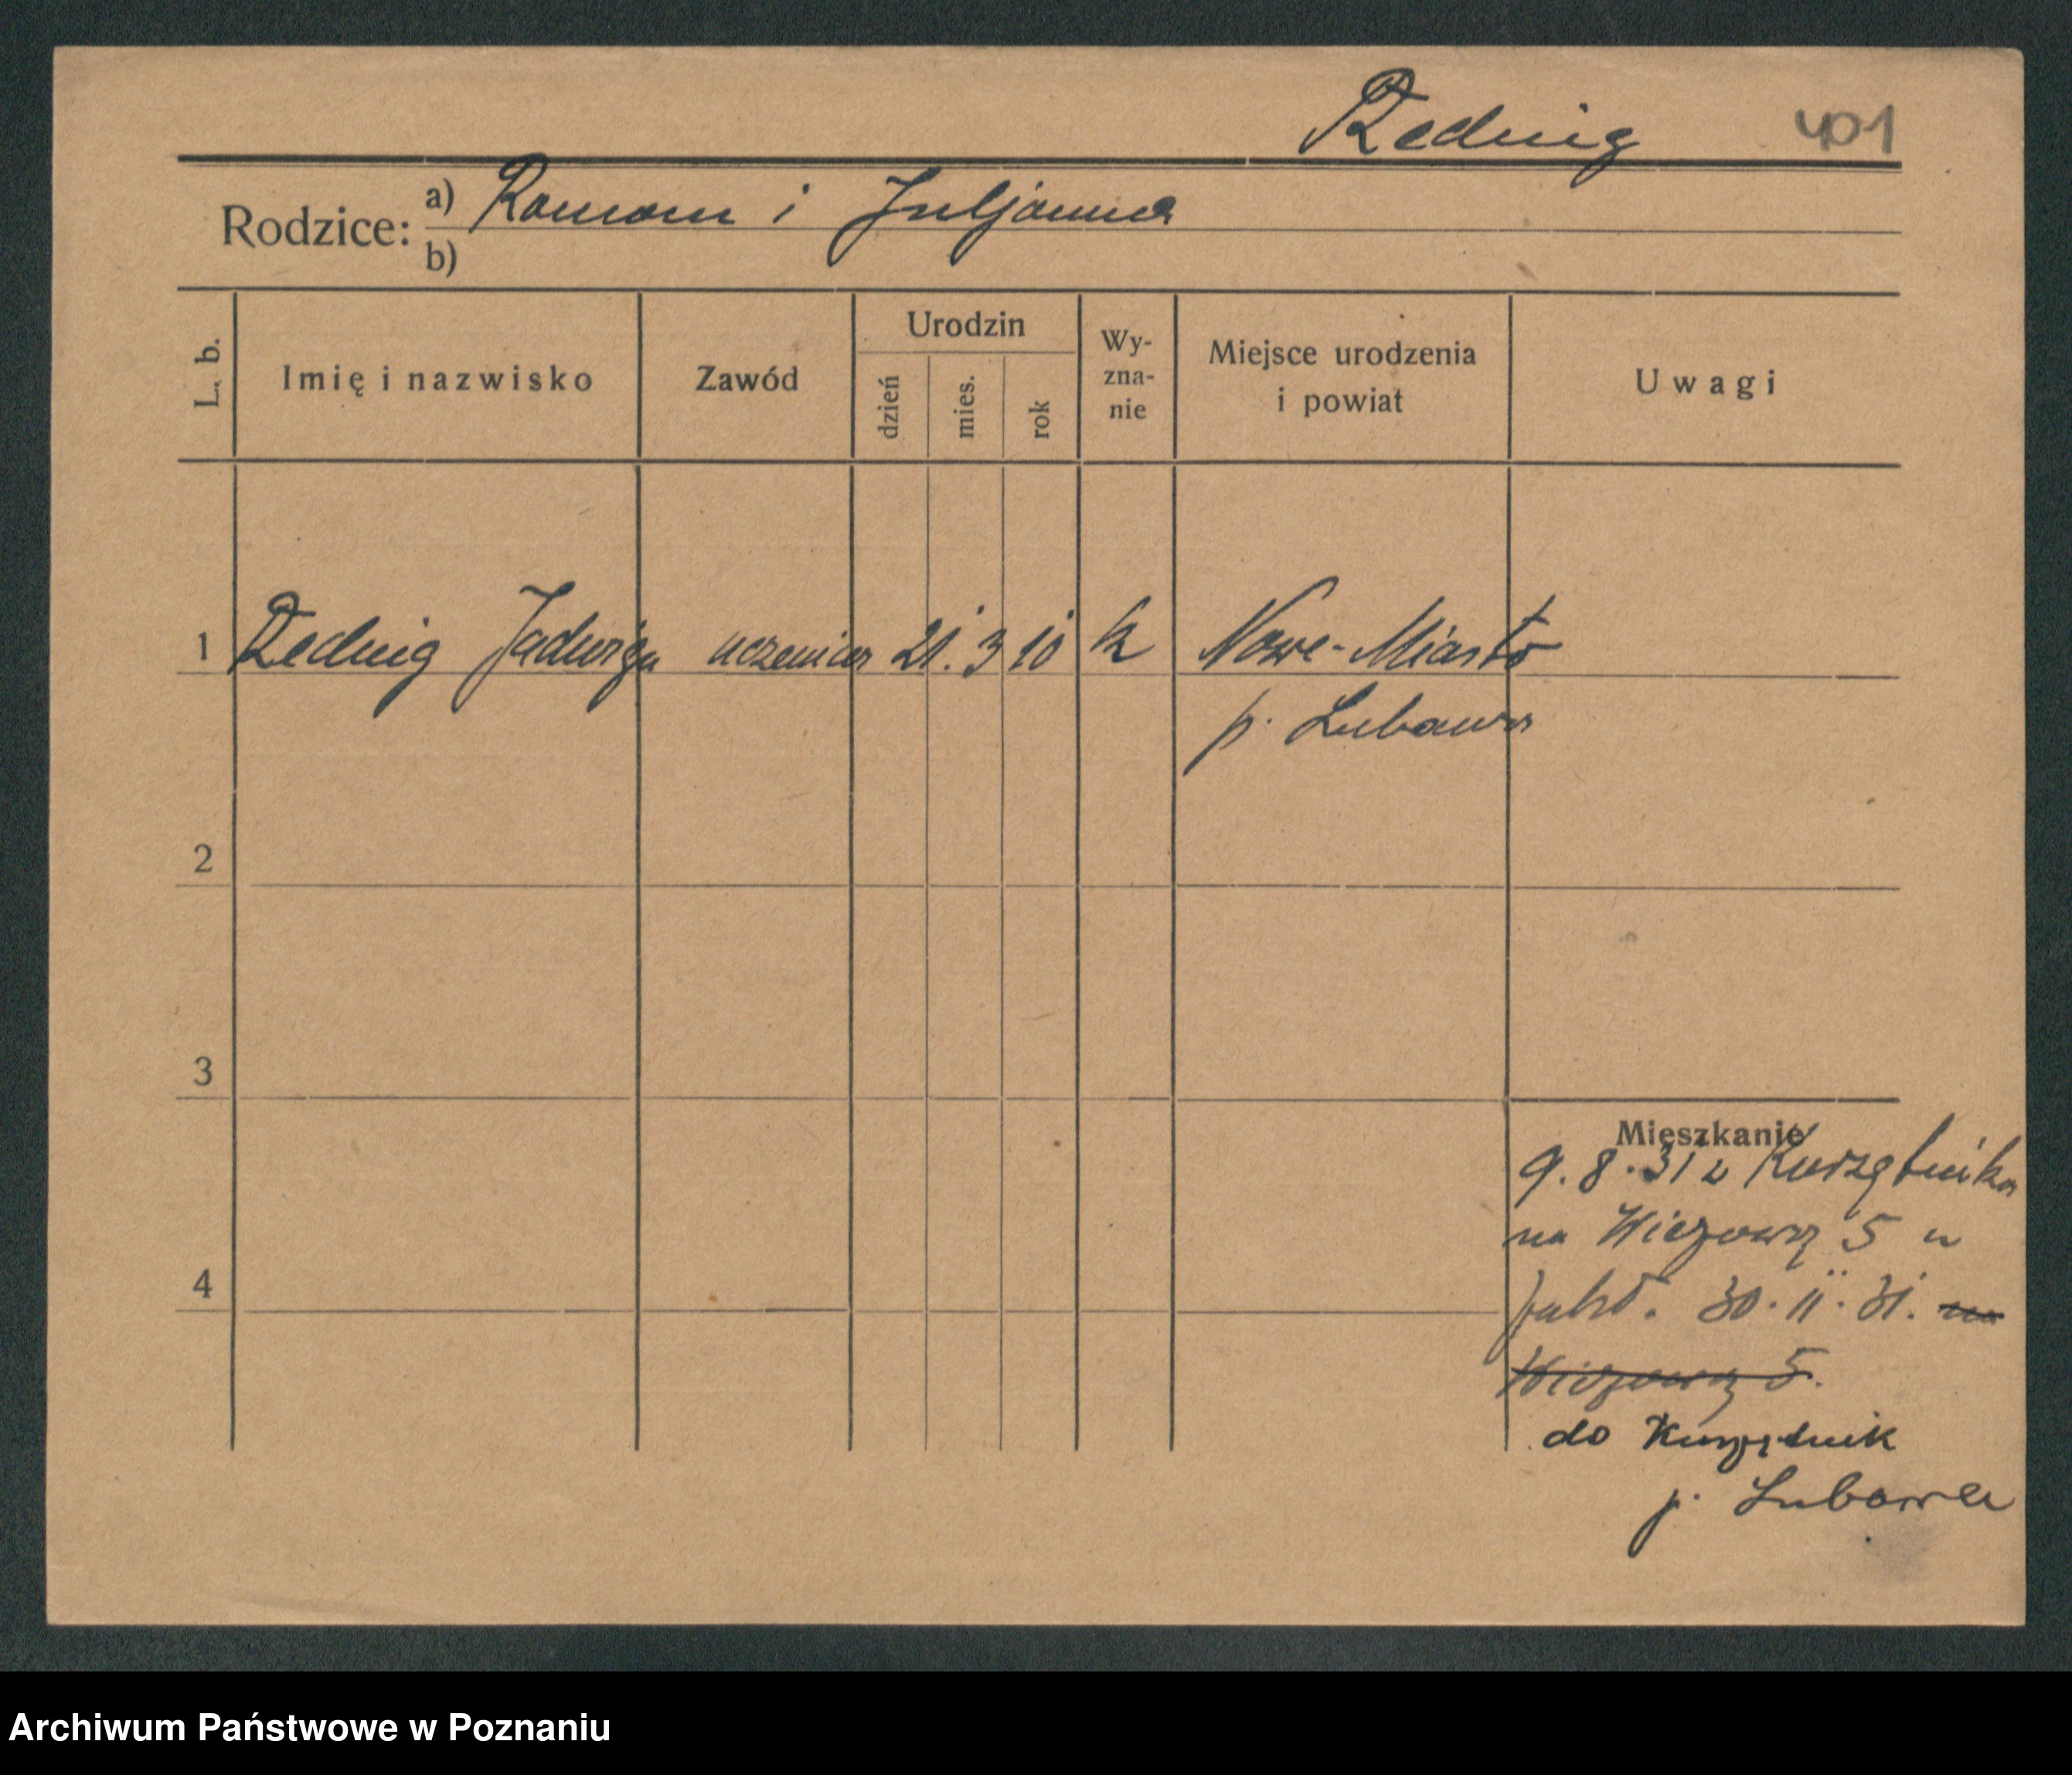 Redwig 401
Rodzice: a) Roman i Juljanna
b)
L. b. Imię i nazwisko Zawód Urodzin dzień mies. rok Wy-zna-nie Miejsce urodzenia i powiat Uwagi
1 Redwig Jadwiga uczenica 21. 3 10 k Nowe-Miasto
p. Lubawa
2
3
Mieszkanie
9.8.31 z Kurzętnika
4
30. 11. 31. na
5.
do Kurzętnik
p. Lubawa
Archiwum Państwowe w Poznaniu